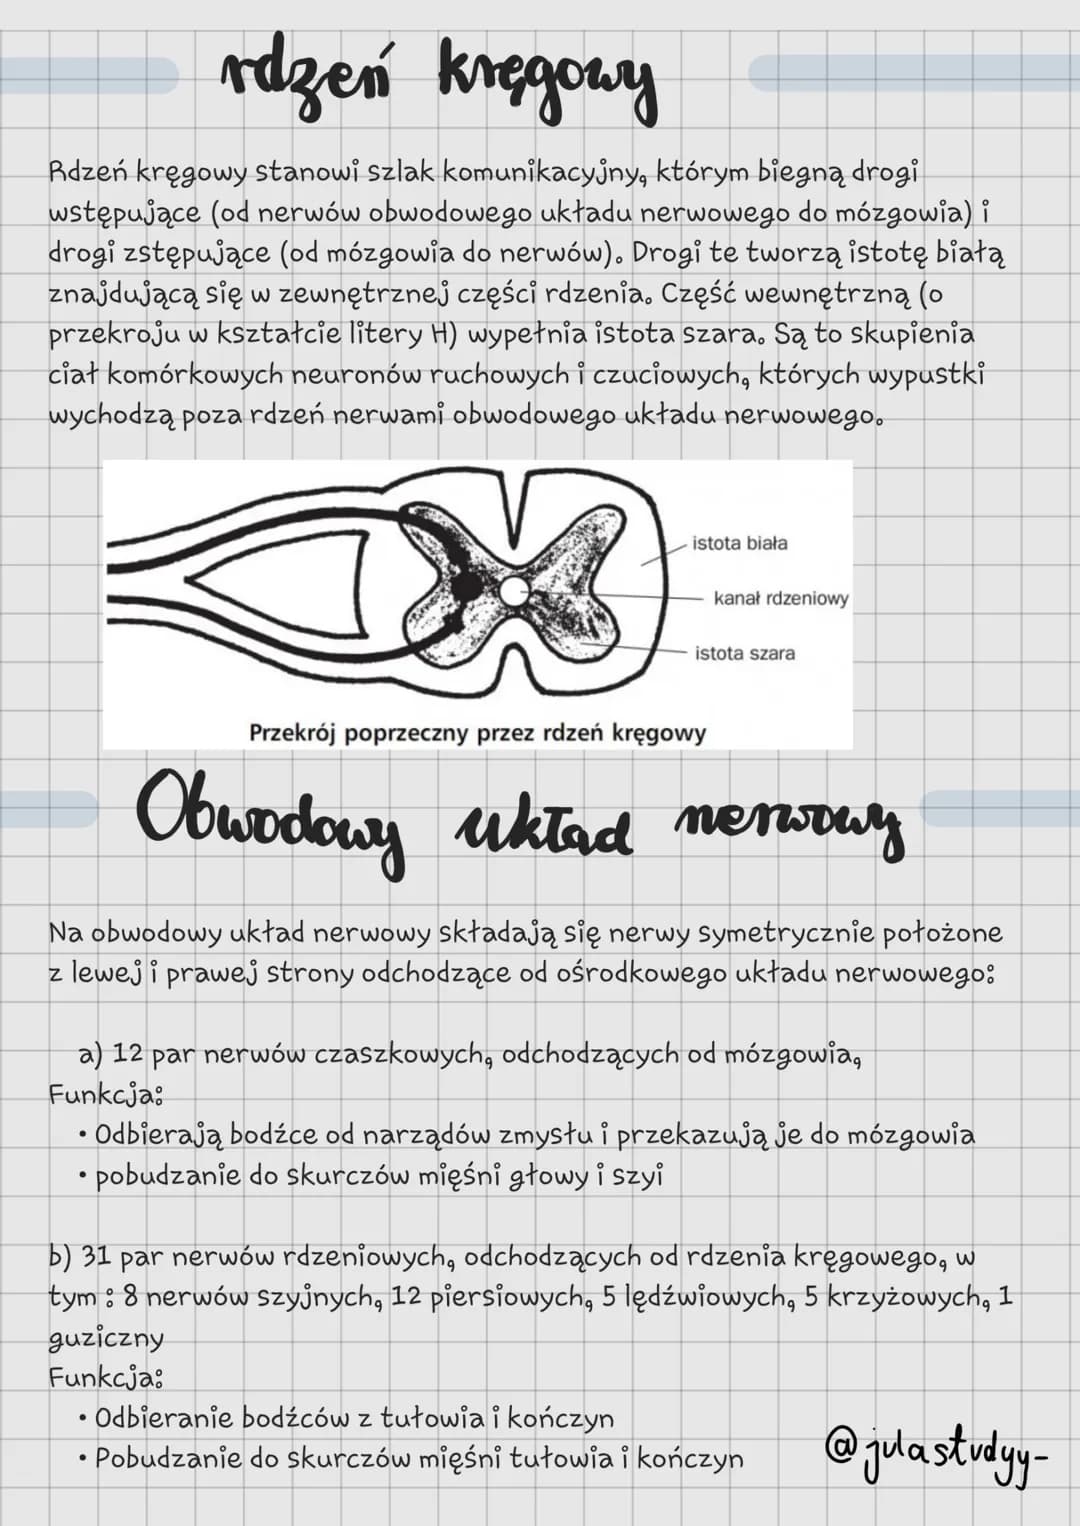 rdzeń kręgowy
Rdzeń kręgowy stanowi szlak komunikacyjny, którym biegną drogi
wstępujące (od nerwów obwodowego układu nerwowego do mózgowia) i
drogi zstępujące (od mózgowia do nerwów). Drogi te tworzą istotę białą
znajdującą się w zewnętrznej części rdzenia. Część wewnętrzną (o
przekroju w kształcie litery H) wypełnia istota szara. Są to skupienia
ciał komórkowych neuronów ruchowych i czuciowych, których wypustki
wychodzą poza rdzeń nerwami obwodowego układu nerwowego.
istota biała
kanał rdzeniowy
istota szara
Przekrój poprzeczny przez rdzeń kręgowy
Obwodowy układ nerwowy
Na obwodowy układ nerwowy składają się nerwy symetrycznie położone
z lewej i prawej strony odchodzące od ośrodkowego układu nerwowego:
a) 12 par nerwów czaszkowych, odchodzących od mózgowia,
Funkcja:
• Odbierają bodźce od narządów zmysłu i przekazują je do mózgowia
• pobudzanie do skurczów mięśni głowy i szyi
b) 31 par nerwów rdzeniowych, odchodzących od rdzenia kręgowego, w
tym : 8 nerwów szyjnych, 12 piersiowych, 5 lędźwiowych, 5 krzyżowych, 1
guziczny
Funkcja:
• Odbieranie bodźców z tułowia i kończyn
• Pobudzanie do skurczów mięśni tułowia i kończyn
@julastudyy-